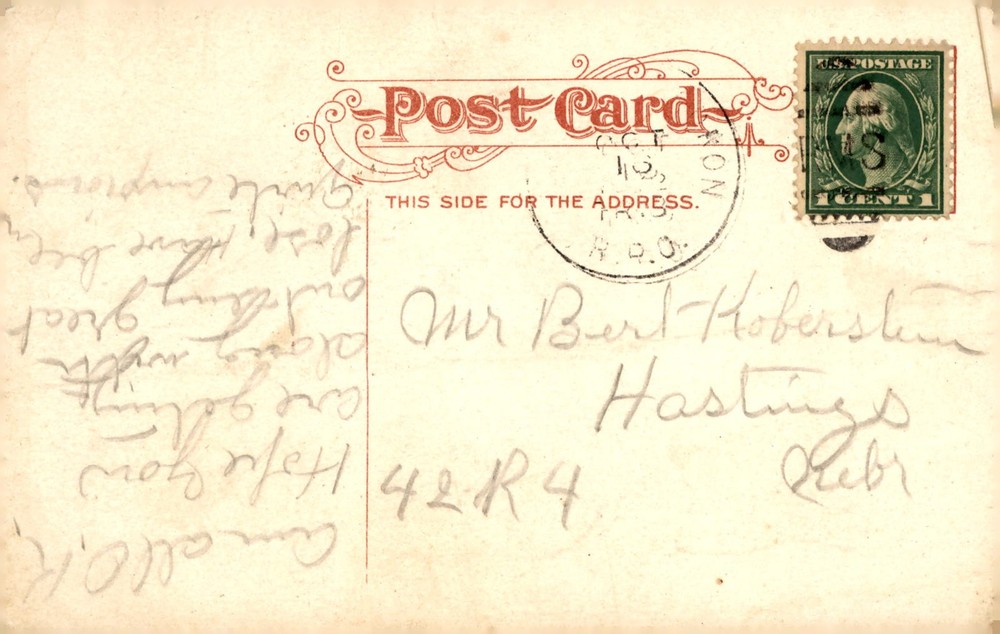 Post Card
THIS SIDE FOR THE ADDRESS.
U.S. POSTAGE
1 CENT 1
OCT
R.P.O.
Mr Bert Koberstein
Hastings
Nebr
42 R 4
Am all O.K.
Hope you
are getting
along with
great
have been
Quite anxious.